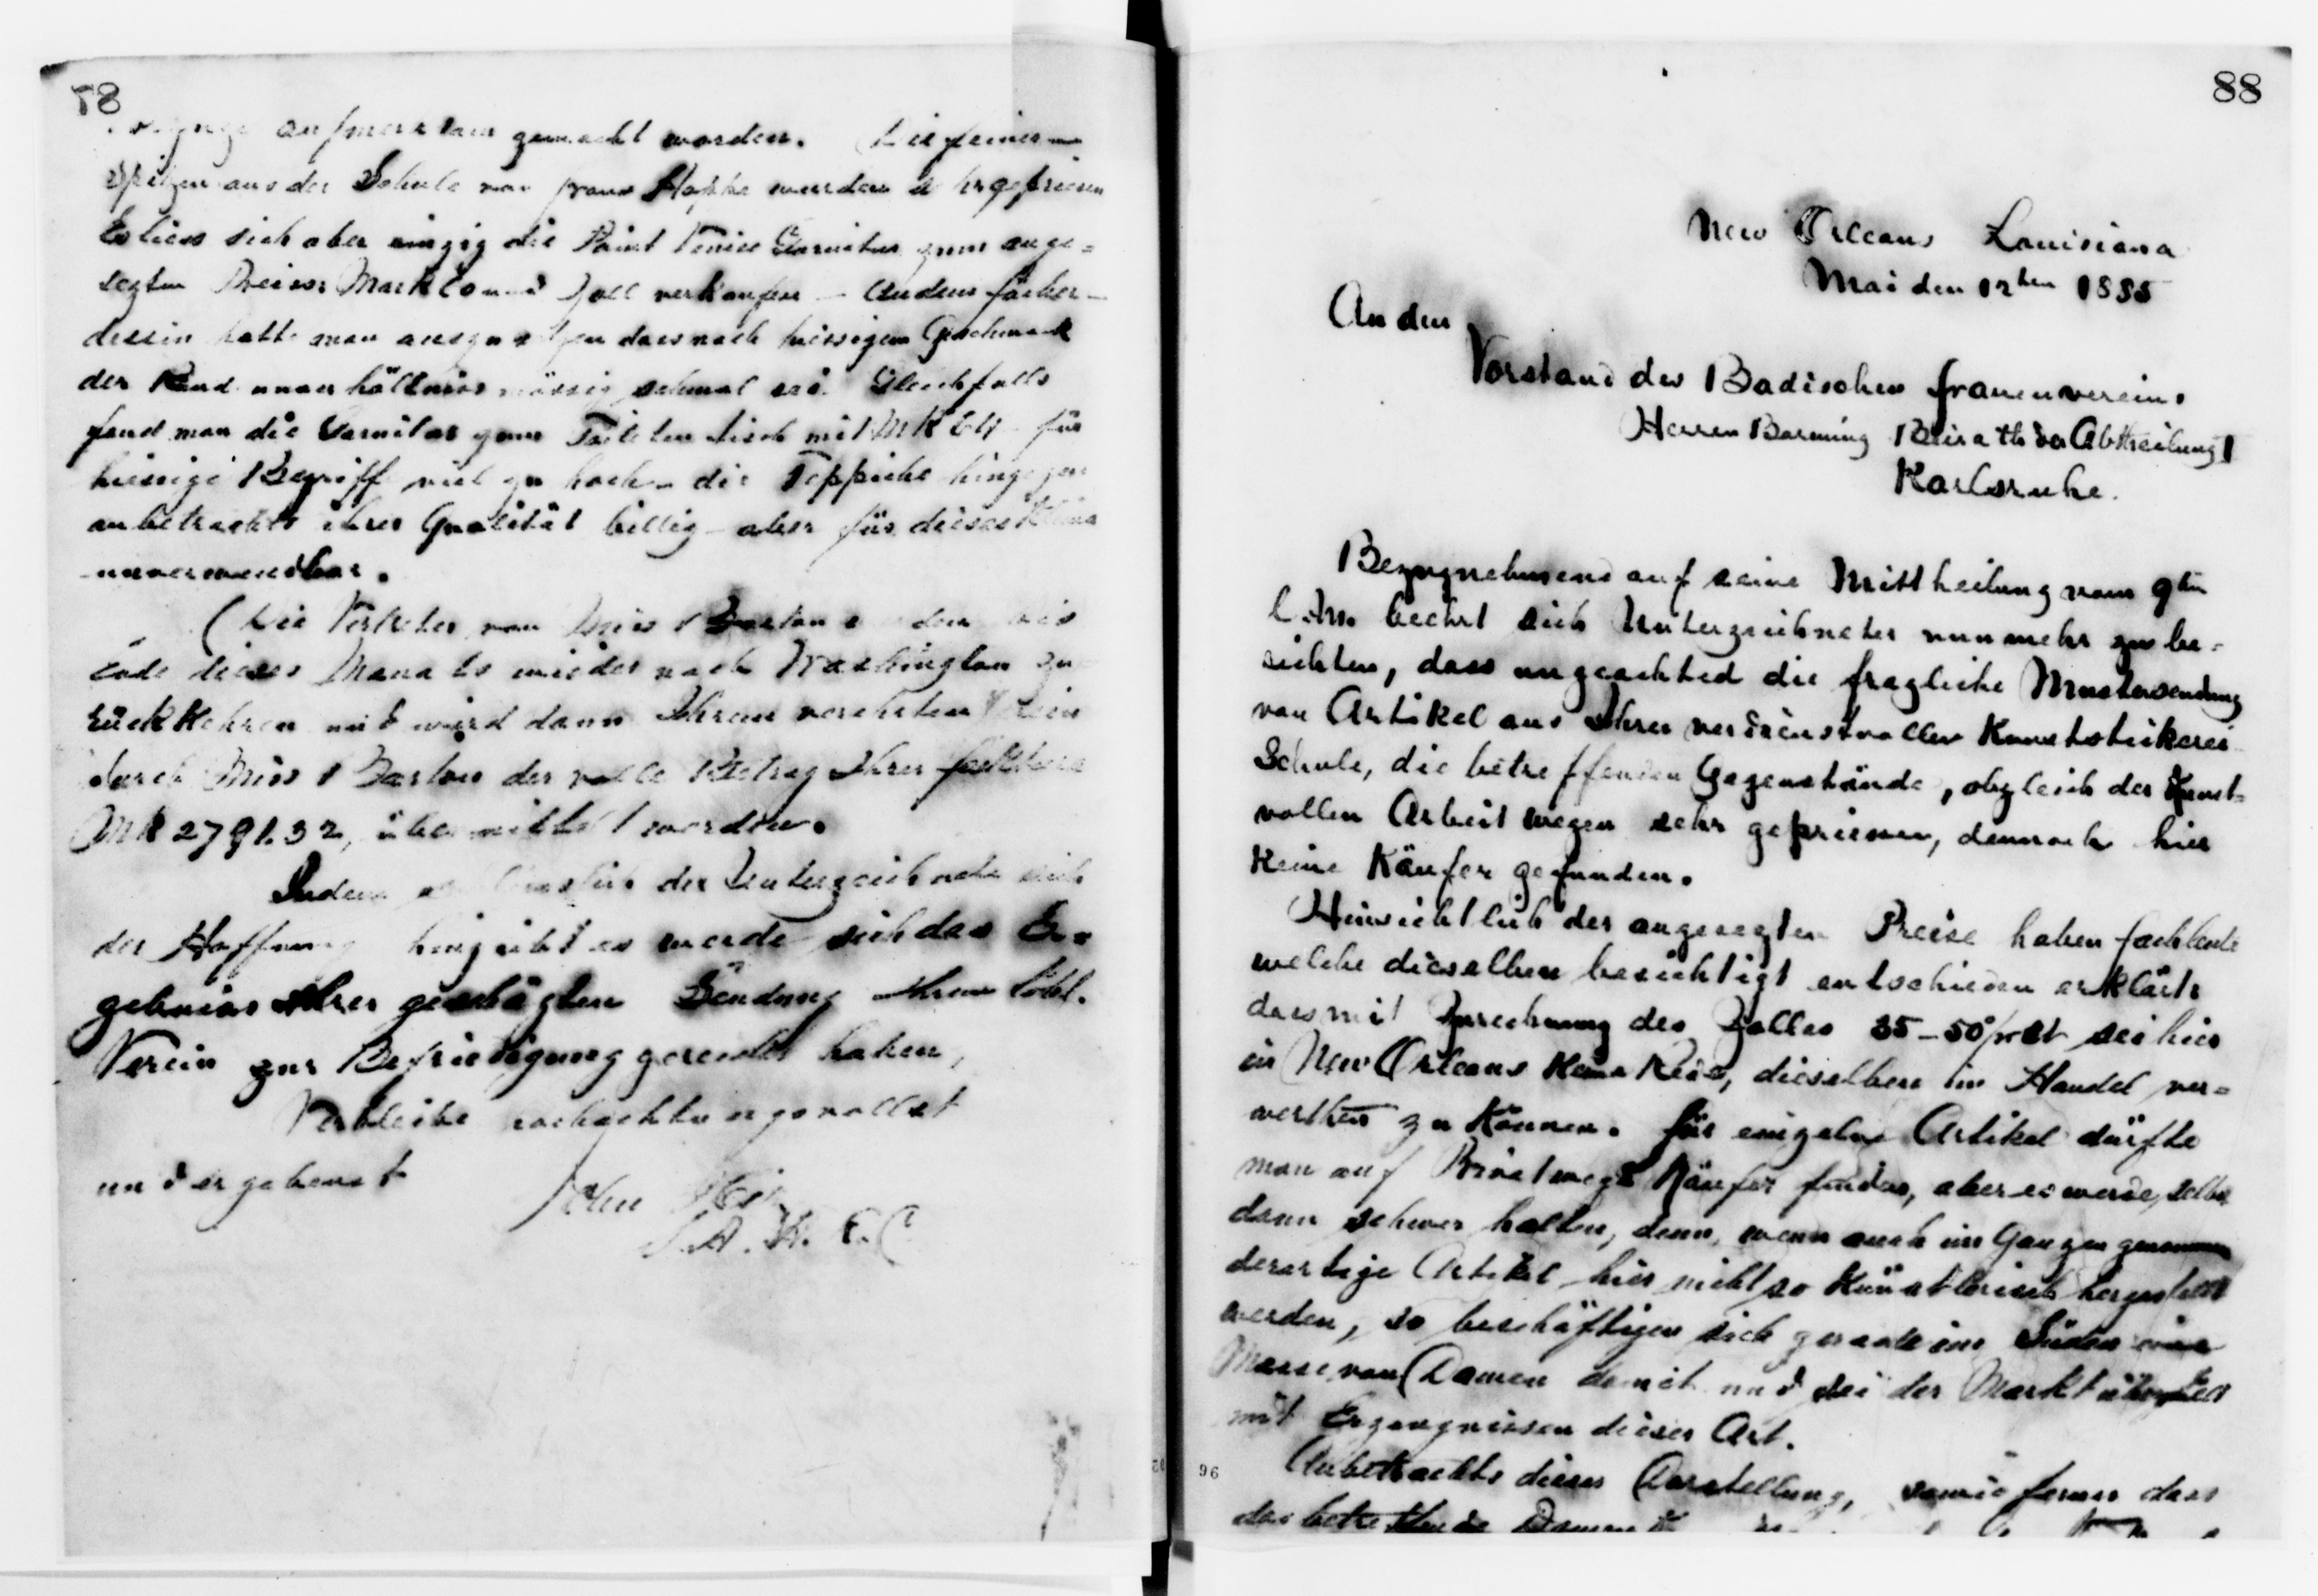 78
aufmerksam gemacht worden. Die feinen
Spitzen aus der Schule von Frau Hoppe wurden gepriesen
Es liess sich aber einzig die Point Venise Garnitur zum ange=
segten Preise Mark und Zoll verkaufen — An dem fächer-
dessin hatte man dass nach hiesigem Geschmack
der Rand schmal sei. Gleichfalls
fand man die Garnitur zum Toiletten tisch mit MK für
hiesige Begriff viel zu hoch – die Teppiche hingegen
anbetrachts ihrer Qualität billig – aber für dieses Klima
unverwendbar.
Die Vertreter von Miss Barton bis
Ende dieses Monats wieder nach Washington zu
rückkehren und wird dann Ihrem verehrten Verein
durch Miss Barton der volle Betrag Ihrer
MK 2791.32, übermittelt worden.
Indem der Unterzeichnete sich
der Hoffnung hingiebt es werde sich das Er=
gebniss Ihrer geschäzten Sendung Ihrem löbl.
Verein zur Befriedigung gereicht haben,
Verbleibe hochachtungsvollst
und ergebenst
John
88
New Orleans Louisiana
Mai den 12ten 1885
An den
Vorstand des Badischen Frauenvereins
Herren Beirath der Abtheilung I
Karlsruhe.
Bezugnehmend auf seine Mittheilung vom 9ten
l. M. beehrt sich Unterzeichneter nunmehr zu be=
richten, dass ungeachted die fragliche Mustersendung
von Artikel aus Ihrer verdienstvollen Kunststickerei
Schule, die betreffenden Gegenstände, obgleich der Kunst=
vollen Arbeit wegen sehr gepriesen, dennoch hier
keine Käufer gefunden.
Hinsichtlich der angesezten Preise haben fachleute
welche dieselben besichtigt entschieden erklärt
dass mit Zurechnung des Zolles 35–50 sei hier
in New Orleans keine Rede, dieselben im Handel ver=
werthen zu können. Für einzelne Artikel dürfte
man auf Privatwege Käufer finden, aber es werde selbst
dann schwer halten, denn, wenn auch im Ganzen genommen
derartige Artikel hier nicht so künstlerisch hergestellt
werden, so beschäftigen sich gerade im Süden eine
Masse von Damen damit und sei der Markt überfüllt
mit Erzeugnissen dieser Art.
96
Anbetrachts dieser Darstellung, sowie ferner dass
das betreffende